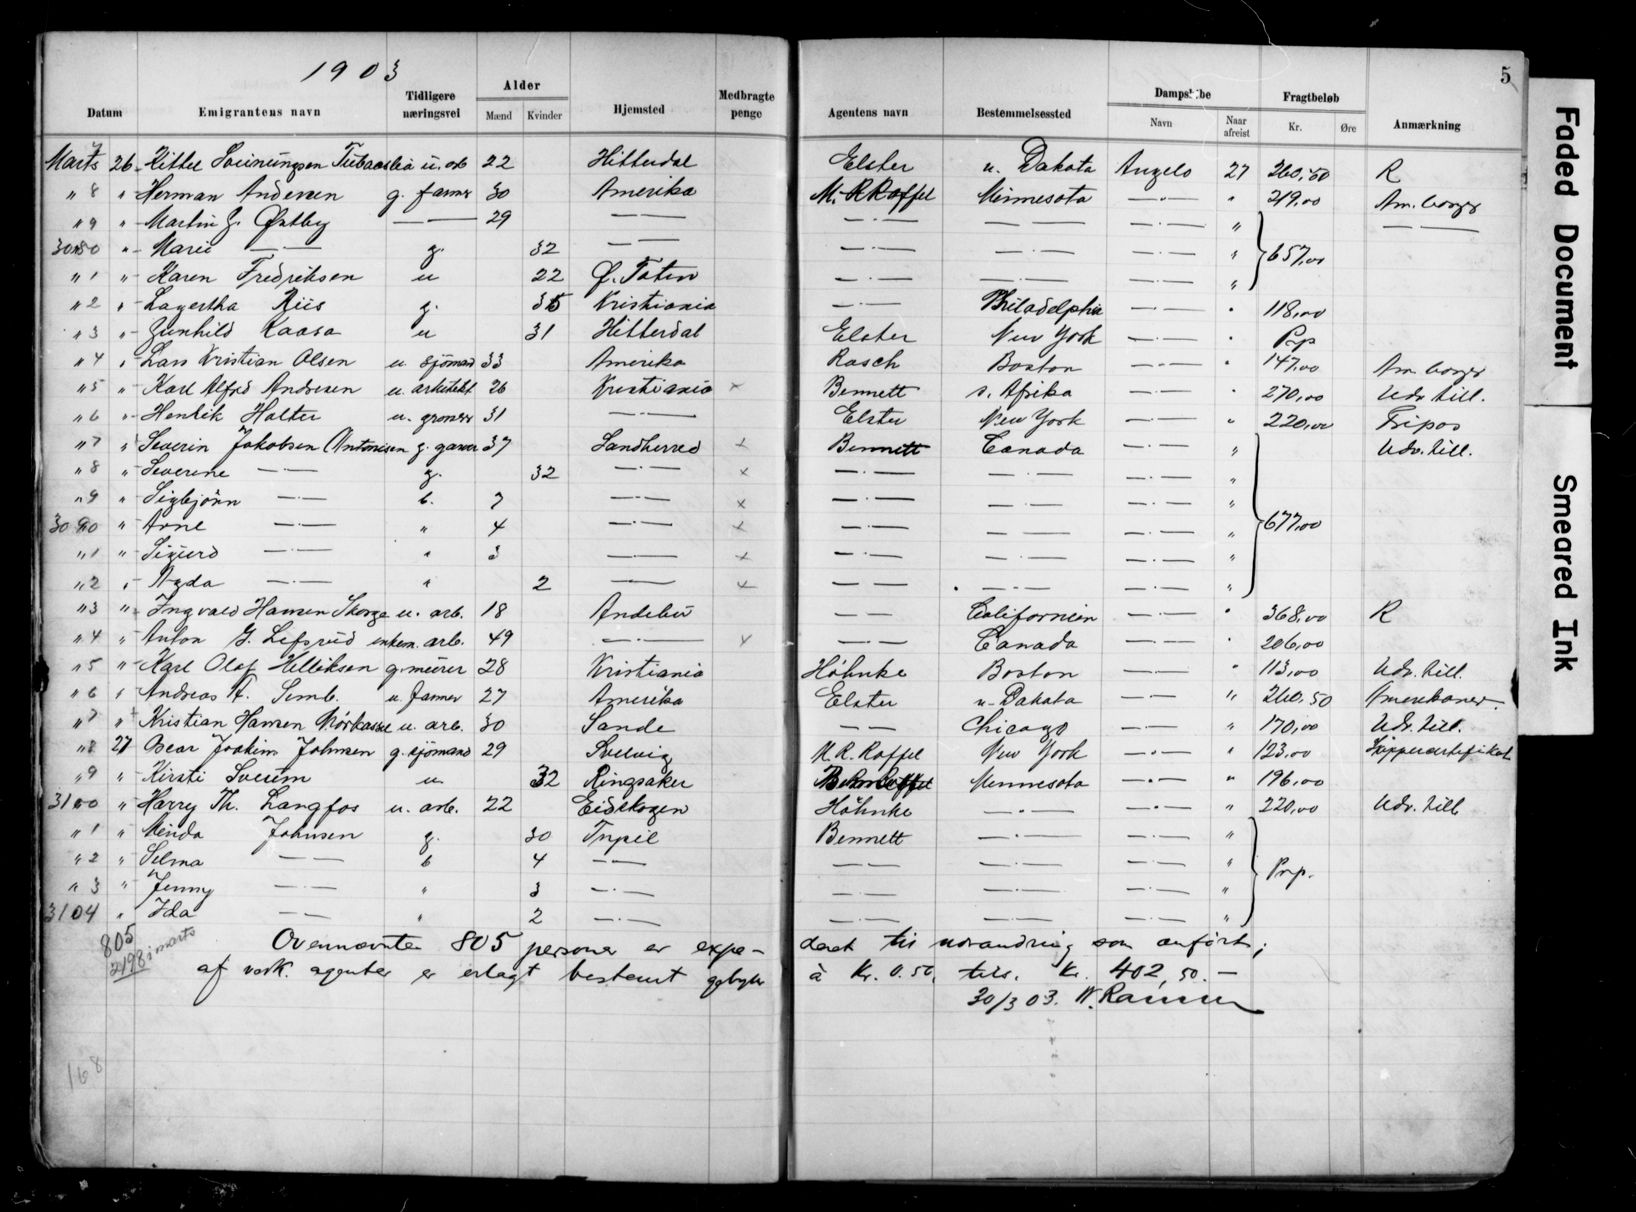 1903
5
Datum Emigrantens navn Tidligere næringsvei Alder Mænd Kvinder Hjemsted Medbragte penge Agentens navn Bestemmelsessted Navn Naar afreist Fragtbeløb Kr. Øre Anmærkning
Marts 7 26 Kittel Sveinungsen u. arb 22 Hitterdal Elster n. Dakota Angelo 27 260,50 R
" 8 " Herman Andersen g. farmer 30 Amerika M. R Raffel Minnesota —"— " 219,00 Am. borger
" 9 " Martin J. Østby —— 29 —— —"— —"— —"— " ——
3080 " Marie —— g. 32 —— —"— —"— —"— " 657,00
" 1 " Karen Fredriksen u 22 Ø. Toten —"— —"— —"— "
" 2 " Lagertha Riis g. 35 Kristiania —"— Philadelphia —"— " 118,00
" 3 " Gunhild Kaasa u 31 Hitterdal Elster New York —"— " Prp
" 4 " Lars Kristian Olsen u sjømand 33 Amerika Rasch Boston —"— " 147,00 Am. borger
" 5 " Karl Alfred Andersen u. arkitekt 26 Kristiania × Bennett s. Afrika —"— " 270,00 Udv. till.
" 6 " Henrik Holter u. grosser 31 —"— Elster New York —"— " 220,00 Fripas
" 7 " Severin Jakobsen (Antonisen g. garver 37 Sandherred × Bennett Canada —"— " Udv. till.
" 8 " Severine —"— g. 32 —"— × —"— —"— —"— "
" 9 " Sigbjörn —"— b. 7 —"— × —"— —"— —"— "
3090 " Arne —"— " 4 —"— × —"— —"— —"— " 677,00
" 1 " Sigurd —"— " 3 —"— × —"— —"— —"— "
" 2 " Agda —"— " 2 —— × —— —"— —"— "
" 3 " Ingvald Hansen Skorge u. arb. 18 Andebu —— Californien —"— " 368,00 R
" 4 " Anton G. Lefsrud enkem. arb. 49 —"— × —"— Canada —"— " 206,00
" 5 " Karl Olaf Helliksen g. murer 28 Kristiania Höhnke Boston —"— " 113,00 Udv. till.
" 6 " Andreas A. Semb. u. farmer 27 Amerika Elster n. Dakota —— " 260,50 Amerikaner.
" 7 " Kristian Hansen u. arb. 30 Sande —— Chicago —— " 170,00 Udv. till.
" 8 27 Oscar Joakim Johnsen g. sjømand 29 Svelvig M. R. Raffel New York —"— " 123,00
" 9 " Kirsti Sveum u. 32 Ringsaker Minnesota —"— " 196,00
3100 " Harry Th. Langfos u. arb. 22 Eidskogen Höhnke —"— —"— " 220,00 Udv. till
" 1 " Minda Johnsen g. 30 Trysil Bennett —"— —"— "
" 2 " Selma —— b 4 —— —"— —"— —"— "
" 3 " Jenny —"— " 3 —"— —"— —"— —"— " Prp.
3104 " Ida —— " 2 —"— —"— —"— —"— "
805
2198 i marts
Ovennævnte 805 personer er expe- deret til udvandring som anført;
af vedk. agenter er erlagt bestemt gebyr à Kr. 0.50, tils. Kr. 402,50.—
30/3 03.
168
Faded Document
Smeared Ink